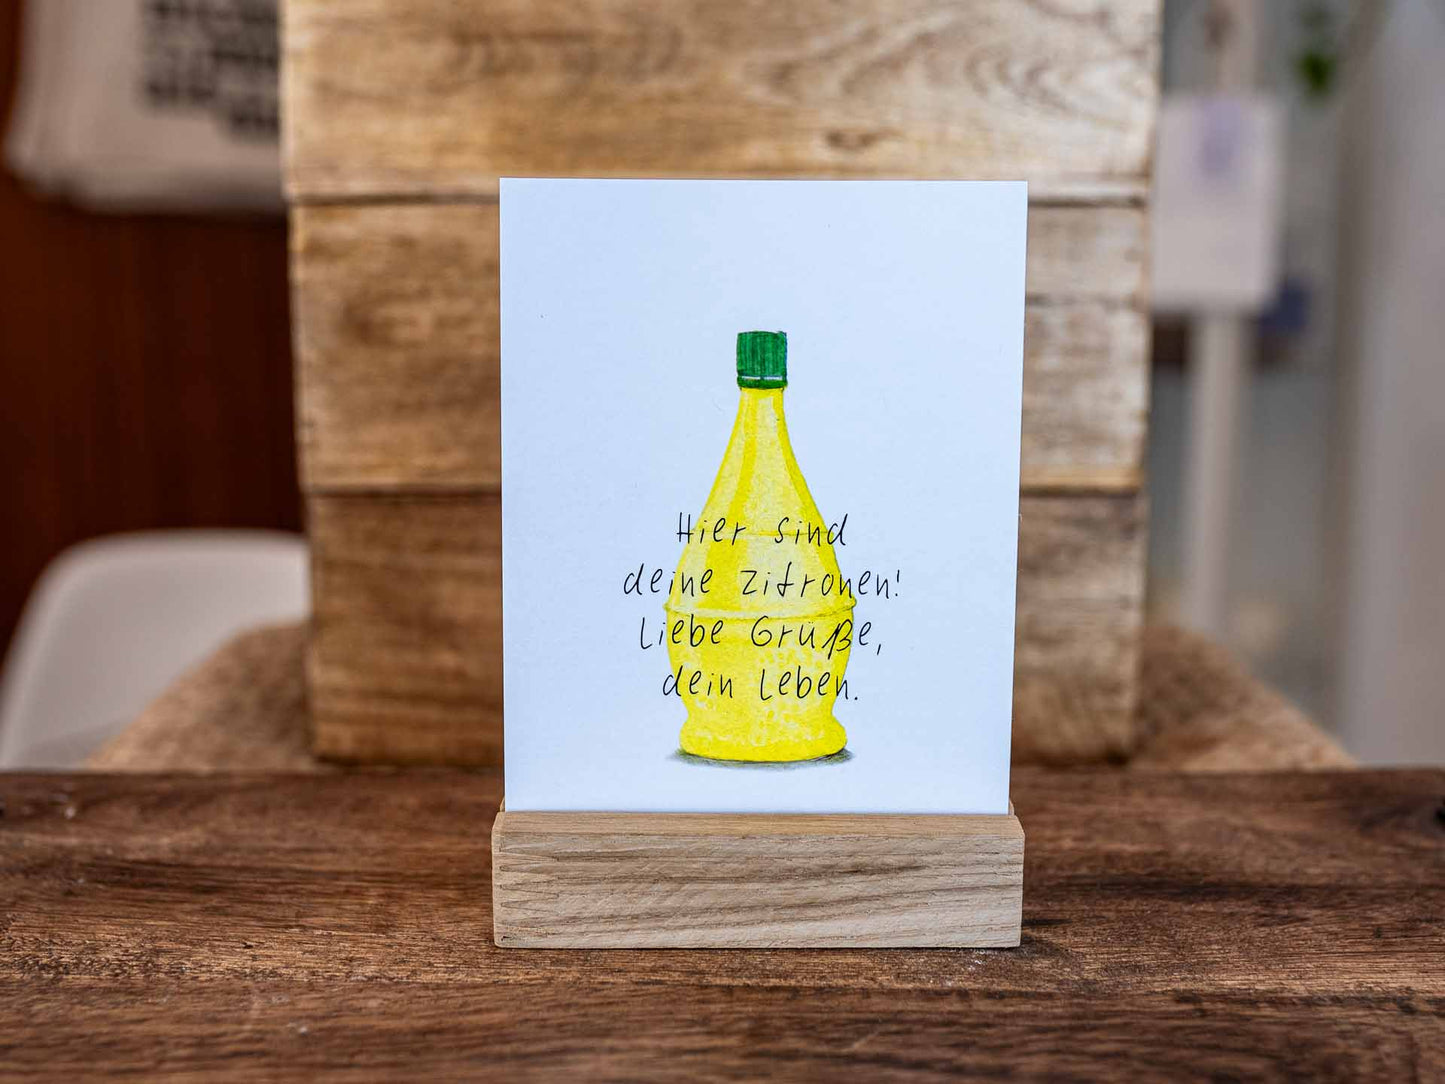 Hier sind
deine Zitronen!
Liebe Grüße,
dein Leben.